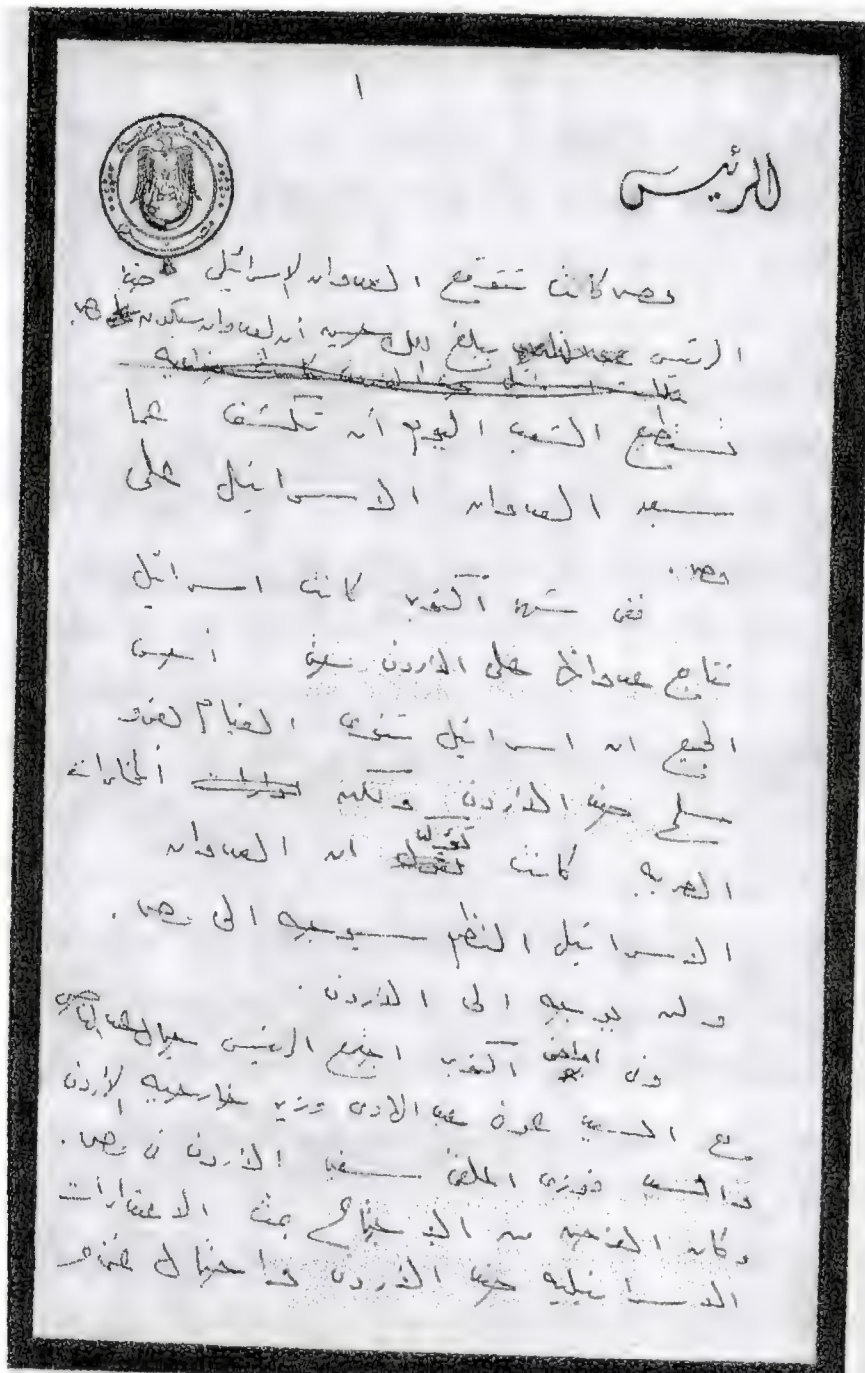 ١
الرئيس
مصر كانت تتوقع العدوان الإسرائيلي ضد
الرئيس يبلغ دول صديقة أن العدوان سيكون على مصر
نستطيع اليوم أن نكشف عما
العدوان الاسرائيلى على
مصر.
ففى شهر اكتوبر كانت اسرائيل
تتابع عدوانها على الاردن
الجميع ان اسرائيل تنوى القيام بغزو
مسلح ضد الاردن ولكن المخابرات
المصريه كانت تقول ان العدوان
الاسرائيلى المنظم سيوجه الى مصر.
ولن يوجه الى الاردن.
وفى اواخر اكتوبر اجتمع الرئيس جمال عبد الناصر
مع السيد عونى عبد الهادى وزير خارجيه الاردن
والسيد فوزى الملقى سفير الاردن فى مصر.
وكان الغرض من الاجتماع بحث الاعتداءات
الاسرائيليه ضد الاردن واحتمال غزو